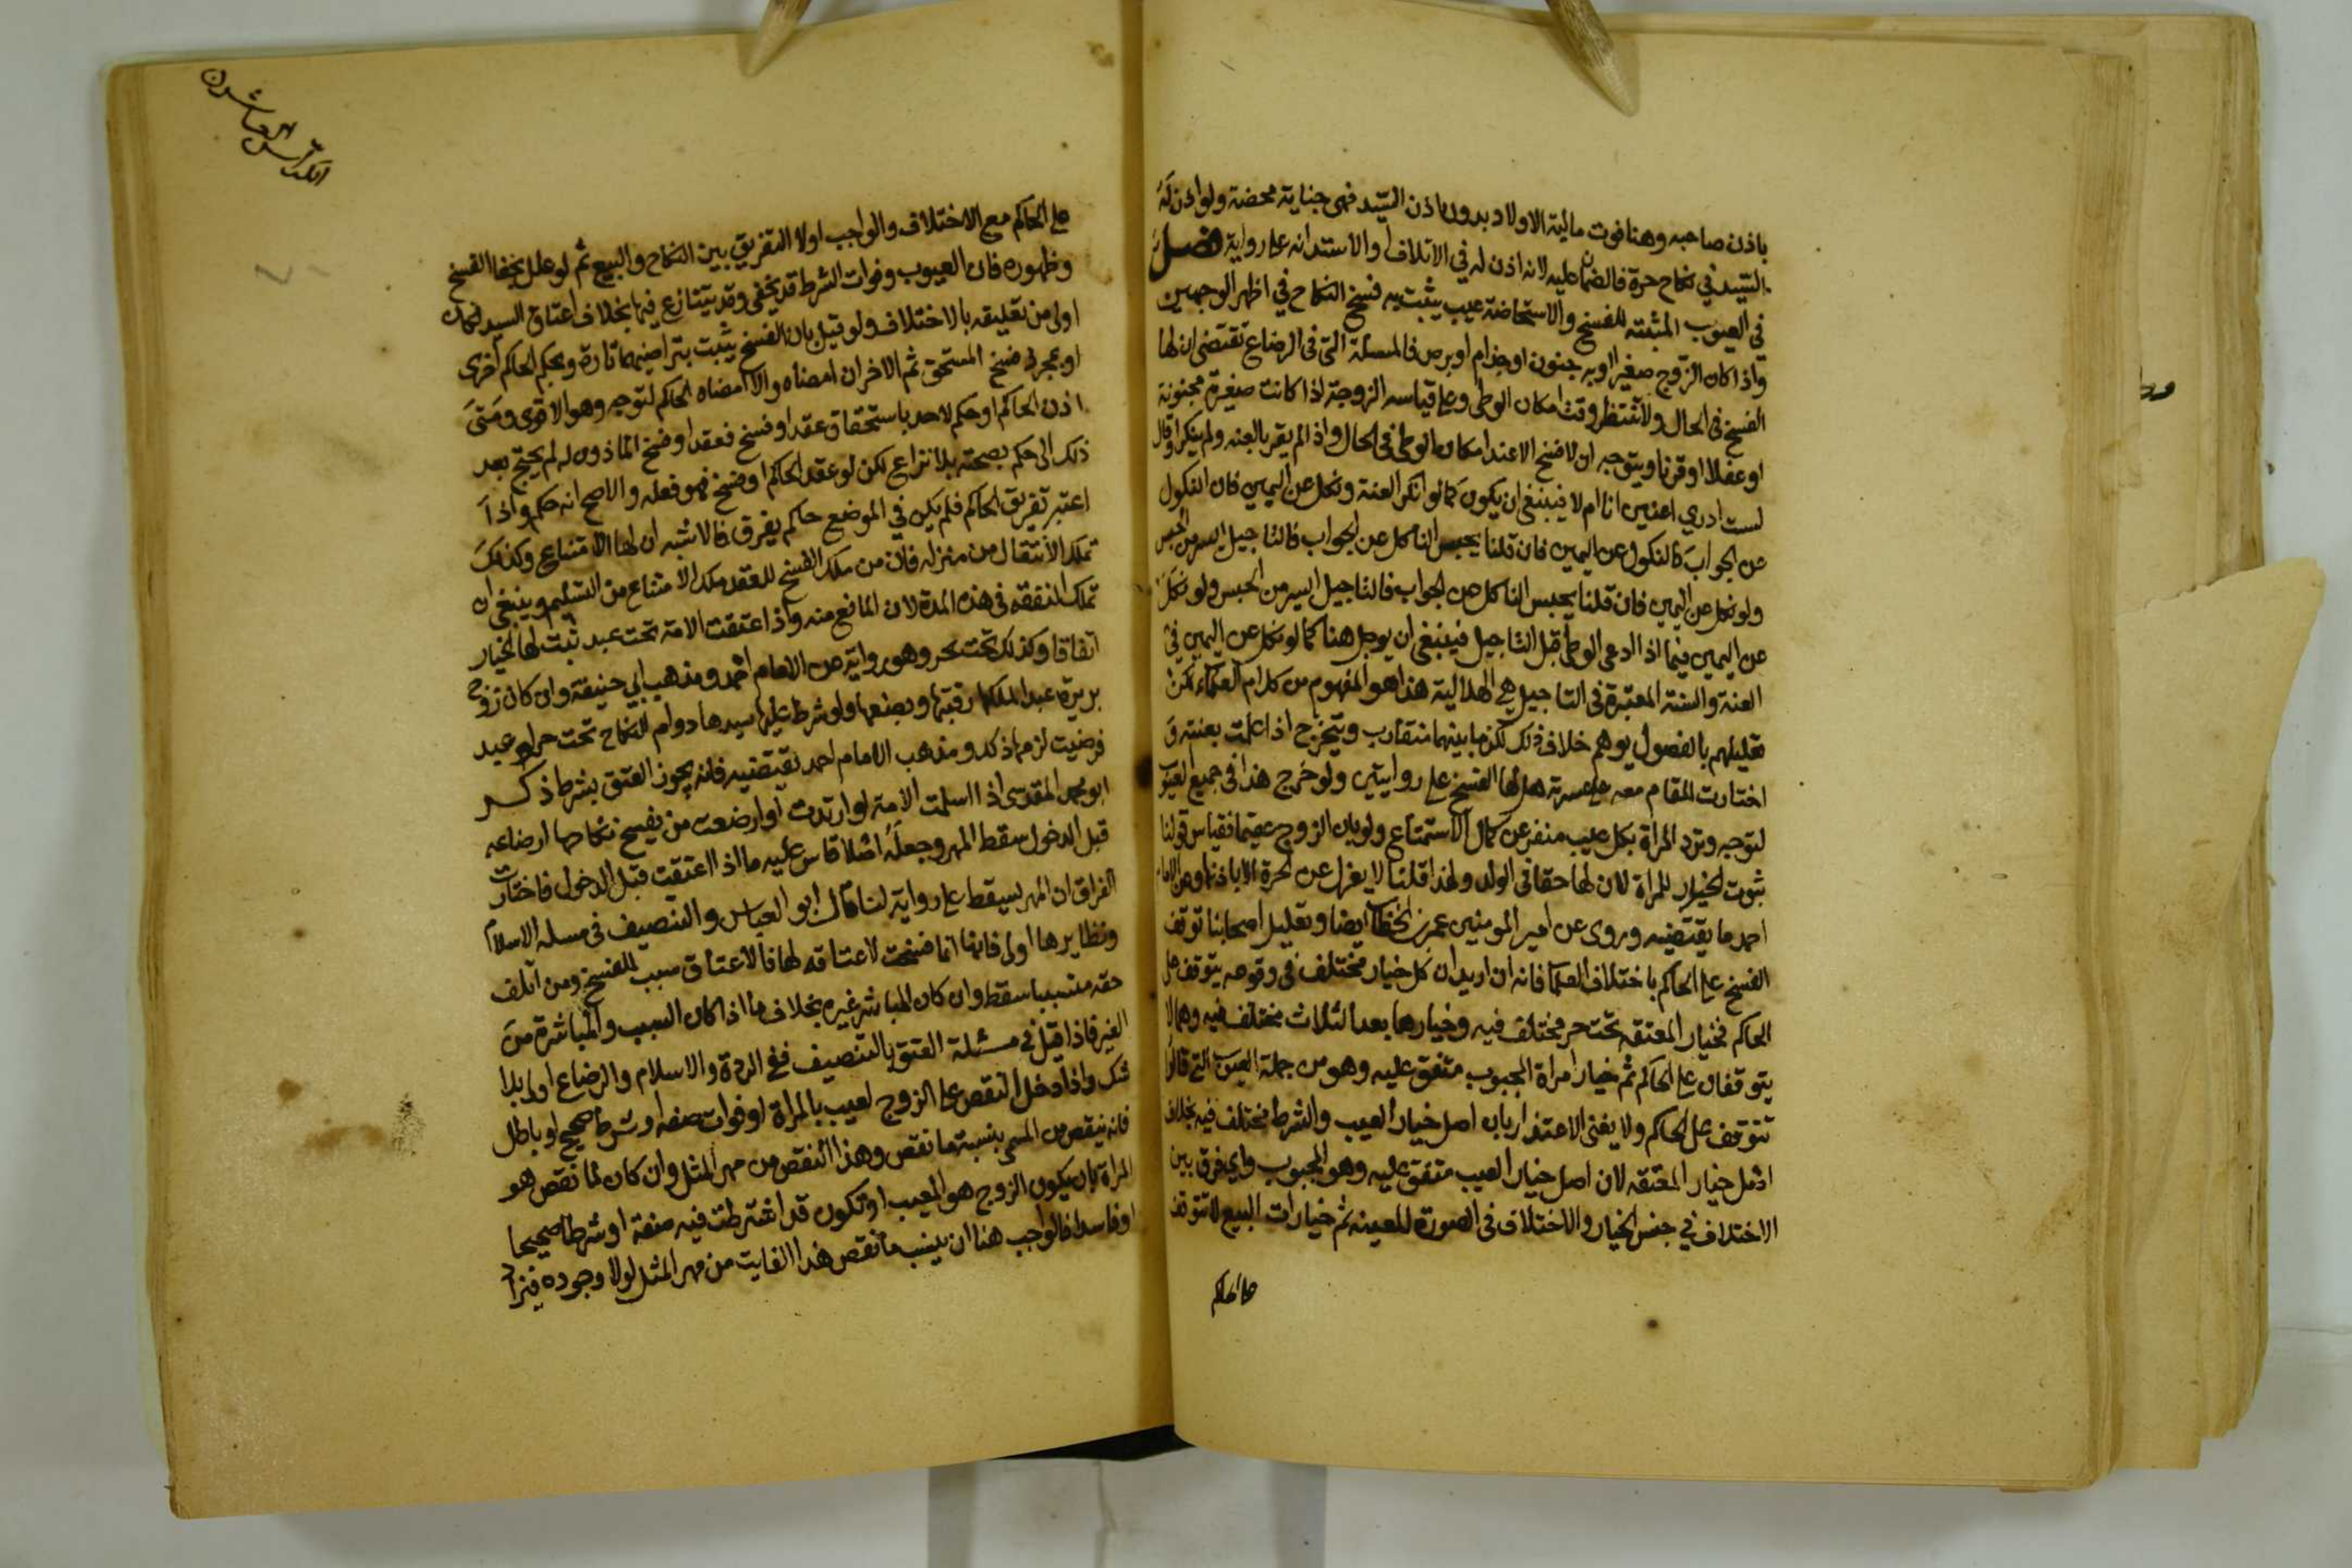 باذن صاحبه وهنا فوت مالية الاولاد بدون اذن السيد فهي جناية محضة ولو اذن له
السيد في نكاح حرة فالضمان عليه لانه اذن له في الاتلاف او الاستدانه على رواية فصل
في العيوب المثبتة للفسخ والاستحاضة عيب يثبت به فسخ النكاح في اظهر الوجهين
واذا كان الزوج صغيرا او به جنون او جذام او برص فالمسئلة التي في الرضاع تقتضي ان لها
الفسخ في الحال ولا تنتظر وقت امكان الوطي وعلى قياسه الزوجة اذا كانت صغيرة مجنونة
او عفلا او قرنا ويتوجه ان لا فسخ الا عند امكان الوطي في الحال واذا لم يقر بالعنه ولم ينكر او قال
لست ادري اعنين انا ام لا فينبغي ان يكون كما لو انكر العنة ونكل عن اليمين فان النكول
عن الجواب كالنكول عن اليمين فان قلنا يحبس الناكل عن الجواب فالتاجيل ايسر من الحبس
ولو نكل عن اليمين فان قلنا يحبس الناكل عن الجواب فالتاجيل ايسر من الحبس ولو نكل
عن اليمين فيما اذا ادعى الوطي قبل التاجيل فينبغي ان يوجل هنا كما لو نكل عن اليمين في
العنة والسنة المعتبرة في التاجيل هي الهلالية هذا هو المفهوم من كلام العلماء لكن
تعليلهم بالفصول يوهم خلاف ذلك لكن ما بينهما متقارب ويتخرج اذا علمت بعنته و
اختارت المقام معه على عسرته هل لها الفسخ على روايتين ولو خرج هذا في جميع العيوب
لتوجه وترد المراة بكل عيب منفر عن كمال الاستمتاع ولو بان الزوج عقيما فقياس قولنا
ثبوت الخيار للمراة لان لها حقا في الولد ولهذا قلنا لا يعزل عن الحرة الا باذنها وعن الامام
احمد ما يقتضيه وروى عن امير المومنين عمر بن الخطاب ايضا وتعليل اصحابنا توقف
الفسخ على الحاكم باختلاف العلما فانه ان اريد ان كل خيار مختلف في وقوعه يتوقف على
الحاكم فخيار المعتقه تحت حر مختلف فيه وخيارها بعد الثلاث مختلف فيه وهما لا
يتوقفان على الحاكم ثم خيار امراة المجبوب متفق عليه وهو من جملة العيوب التي قالوا
تتوقف على الحاكم ولا يغني الاعتذار بان اصل خيار العيب والشرط مختلف فيه بخلاف
اصل خيار المعتقه لان اصل خيار العيب متفق عليه وهو المجبوب واي فرق بين
الاختلاف في جنس الخيار والاختلاف في الصورة المعينه ثم خيارات البيع لا تتوقف
على الحاكم
الكراس العاشرون
على الحاكم مع الاختلاف والواجب اولا التفريق بين النكاح والبيع ثم لو علل بخفا الفسخ
وظهوره فان العيوب وفوات الشرط قد يخفى وقد يتنازع فيها بخلاف اعتاق السيد لكان
اولى من تعليقه بالاختلاف ولو قيل بان الفسخ يثبت بتراضيهما تارة وبحكم الحاكم اخرى
او بمجرد فسخ المستحق ثم الاخر ان امضاه والا امضاه الحاكم لتوجه وهو الاقوى ومتى
اذن الحاكم او حكم لاحد باستحقاق عقد او فسخ فعقد او فسخ الماذون له لم يحتج بعد
ذلك الى حكم بصحته بلا نزاع لكن لو عقد الحاكم او فسخ فهو فعله والاصح انه حكم واذا
اعتبر تفريق الحاكم فلم يكن في الموضع حاكم يفرق فالاشبه ان لها الامتناع وكذلك
تملك الانتقال من منزله فان من ملك الفسخ للعقد ملك الامتناع من التسليم وينبغي ان
تملك النفقه في هذه المدة لان المانع منه واذا اعتقت الامة تحت عبد ثبت لها الخيار
اتفاقا وكذلك تحت حر وهو رواية عن الامام احمد ومذهب ابي حنيفة وان كان زوج
بريرة عبدا لملكها رقبتها وبضعها ولو شرط عليها سيدها دوام النكاح تحت حر او عبد
فرضيت لزمها ذلك ومذهب الامام احمد يقتضيه فانه يجوز العتق بشرط ذكره
ابو محمد المقدسي اذا اسلمت الامة او ارتدت او ارضعت من يفسخ نكاحها ارضاعه
قبل الدخول سقط المهر وجعله اصلا قاس عليه ما اذا اعتقت قبل الدخول فاختارت
الفراق ان المهر يسقط على رواية لنا قال ابو العباس والتنصيف في مسله الاسلام
ونظايرها اولى فانها انما فسخت لاعتاقه لها فالاعتاق سبب للفسخ ومن اتلف
حقه متسببا سقط وان كان المباشر غيره بخلاف ما اذا كان السبب والمباشرة من
الغير فاذا قيل في مسئلة العتق بالتنصيف ففي الردة والاسلام والرضاع اولى بلا
شك واذا دخل النقص على الزوج لعيب بالمراة او فوات صفه او شرط صحيح او باطل
فانه ينقص من المسمى بنسبة ما نقص وهذا النقص من مهر المثل وان كان لما نقص هو
المراة بان يكون الزوج هو المعيب او تكون قد اشترطت فيه صفة او شرطا صحيحا
او فاسدا فالواجب هنا ان ينسب ما نقص هذا الفايت من مهر المثل لولا وجوده فيزاد